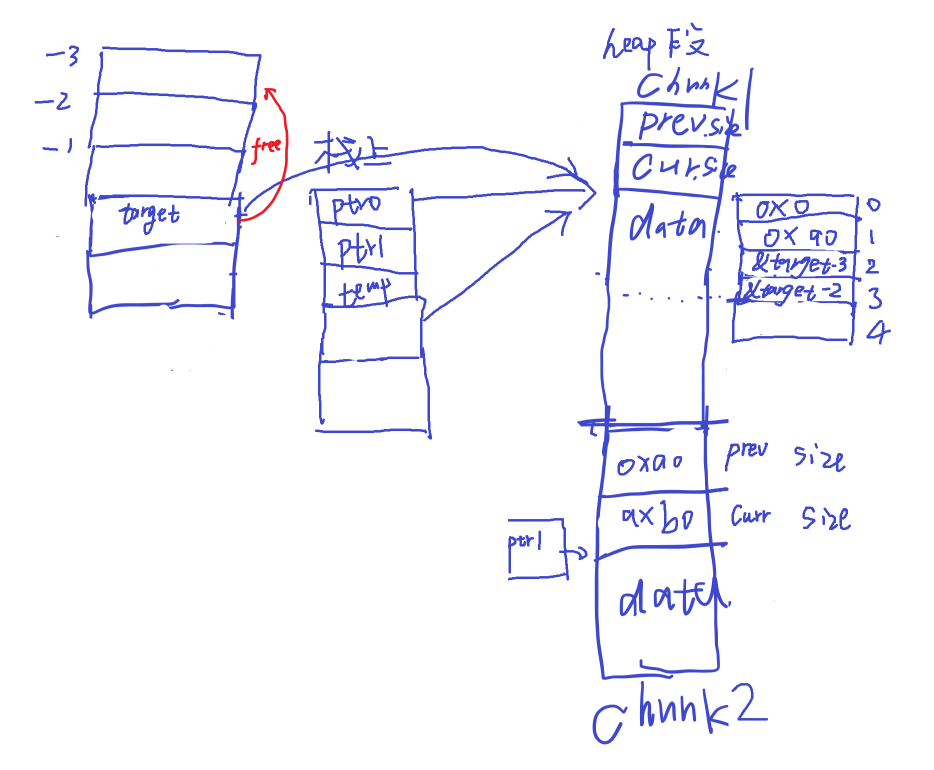 -3
-2
-1
target
free
栈上
ptr0
ptr1
temp
heap段
Chunk1
prev.size
Cur.size
data
0x0 0
0x90 1
&target-3 2
&target-2 3
4
0xa0 prev size
axb0 Curr size
ptr1
data
Chunk2